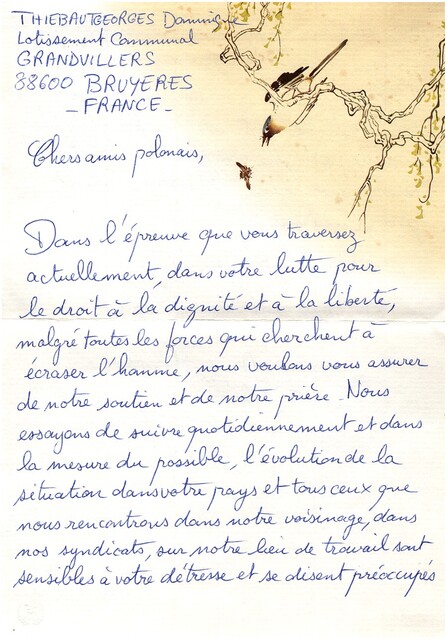 THIEBAUTGEORGES Dominique
Lotissement Communal
GRANDVILLERS
88600 BRUYERES
- FRANCE -
Chers amis polonais,
Dans l'épreuve que vous traversez
actuellement, dans votre lutte pour
le droit à la dignité et à la liberté,
malgré toutes les forces qui cherchent à
écraser l'homme, nous voulons vous assurer
de notre soutien et de notre prière. Nous
essayons de suivre quotidiennement et dans
la mesure du possible, l'évolution de la
situation dans votre pays et tous ceux que
nous rencontrons dans notre voisinage, dans
nos syndicats, sur notre lieu de travail sont
sensibles à votre détresse et se disent préoccupés